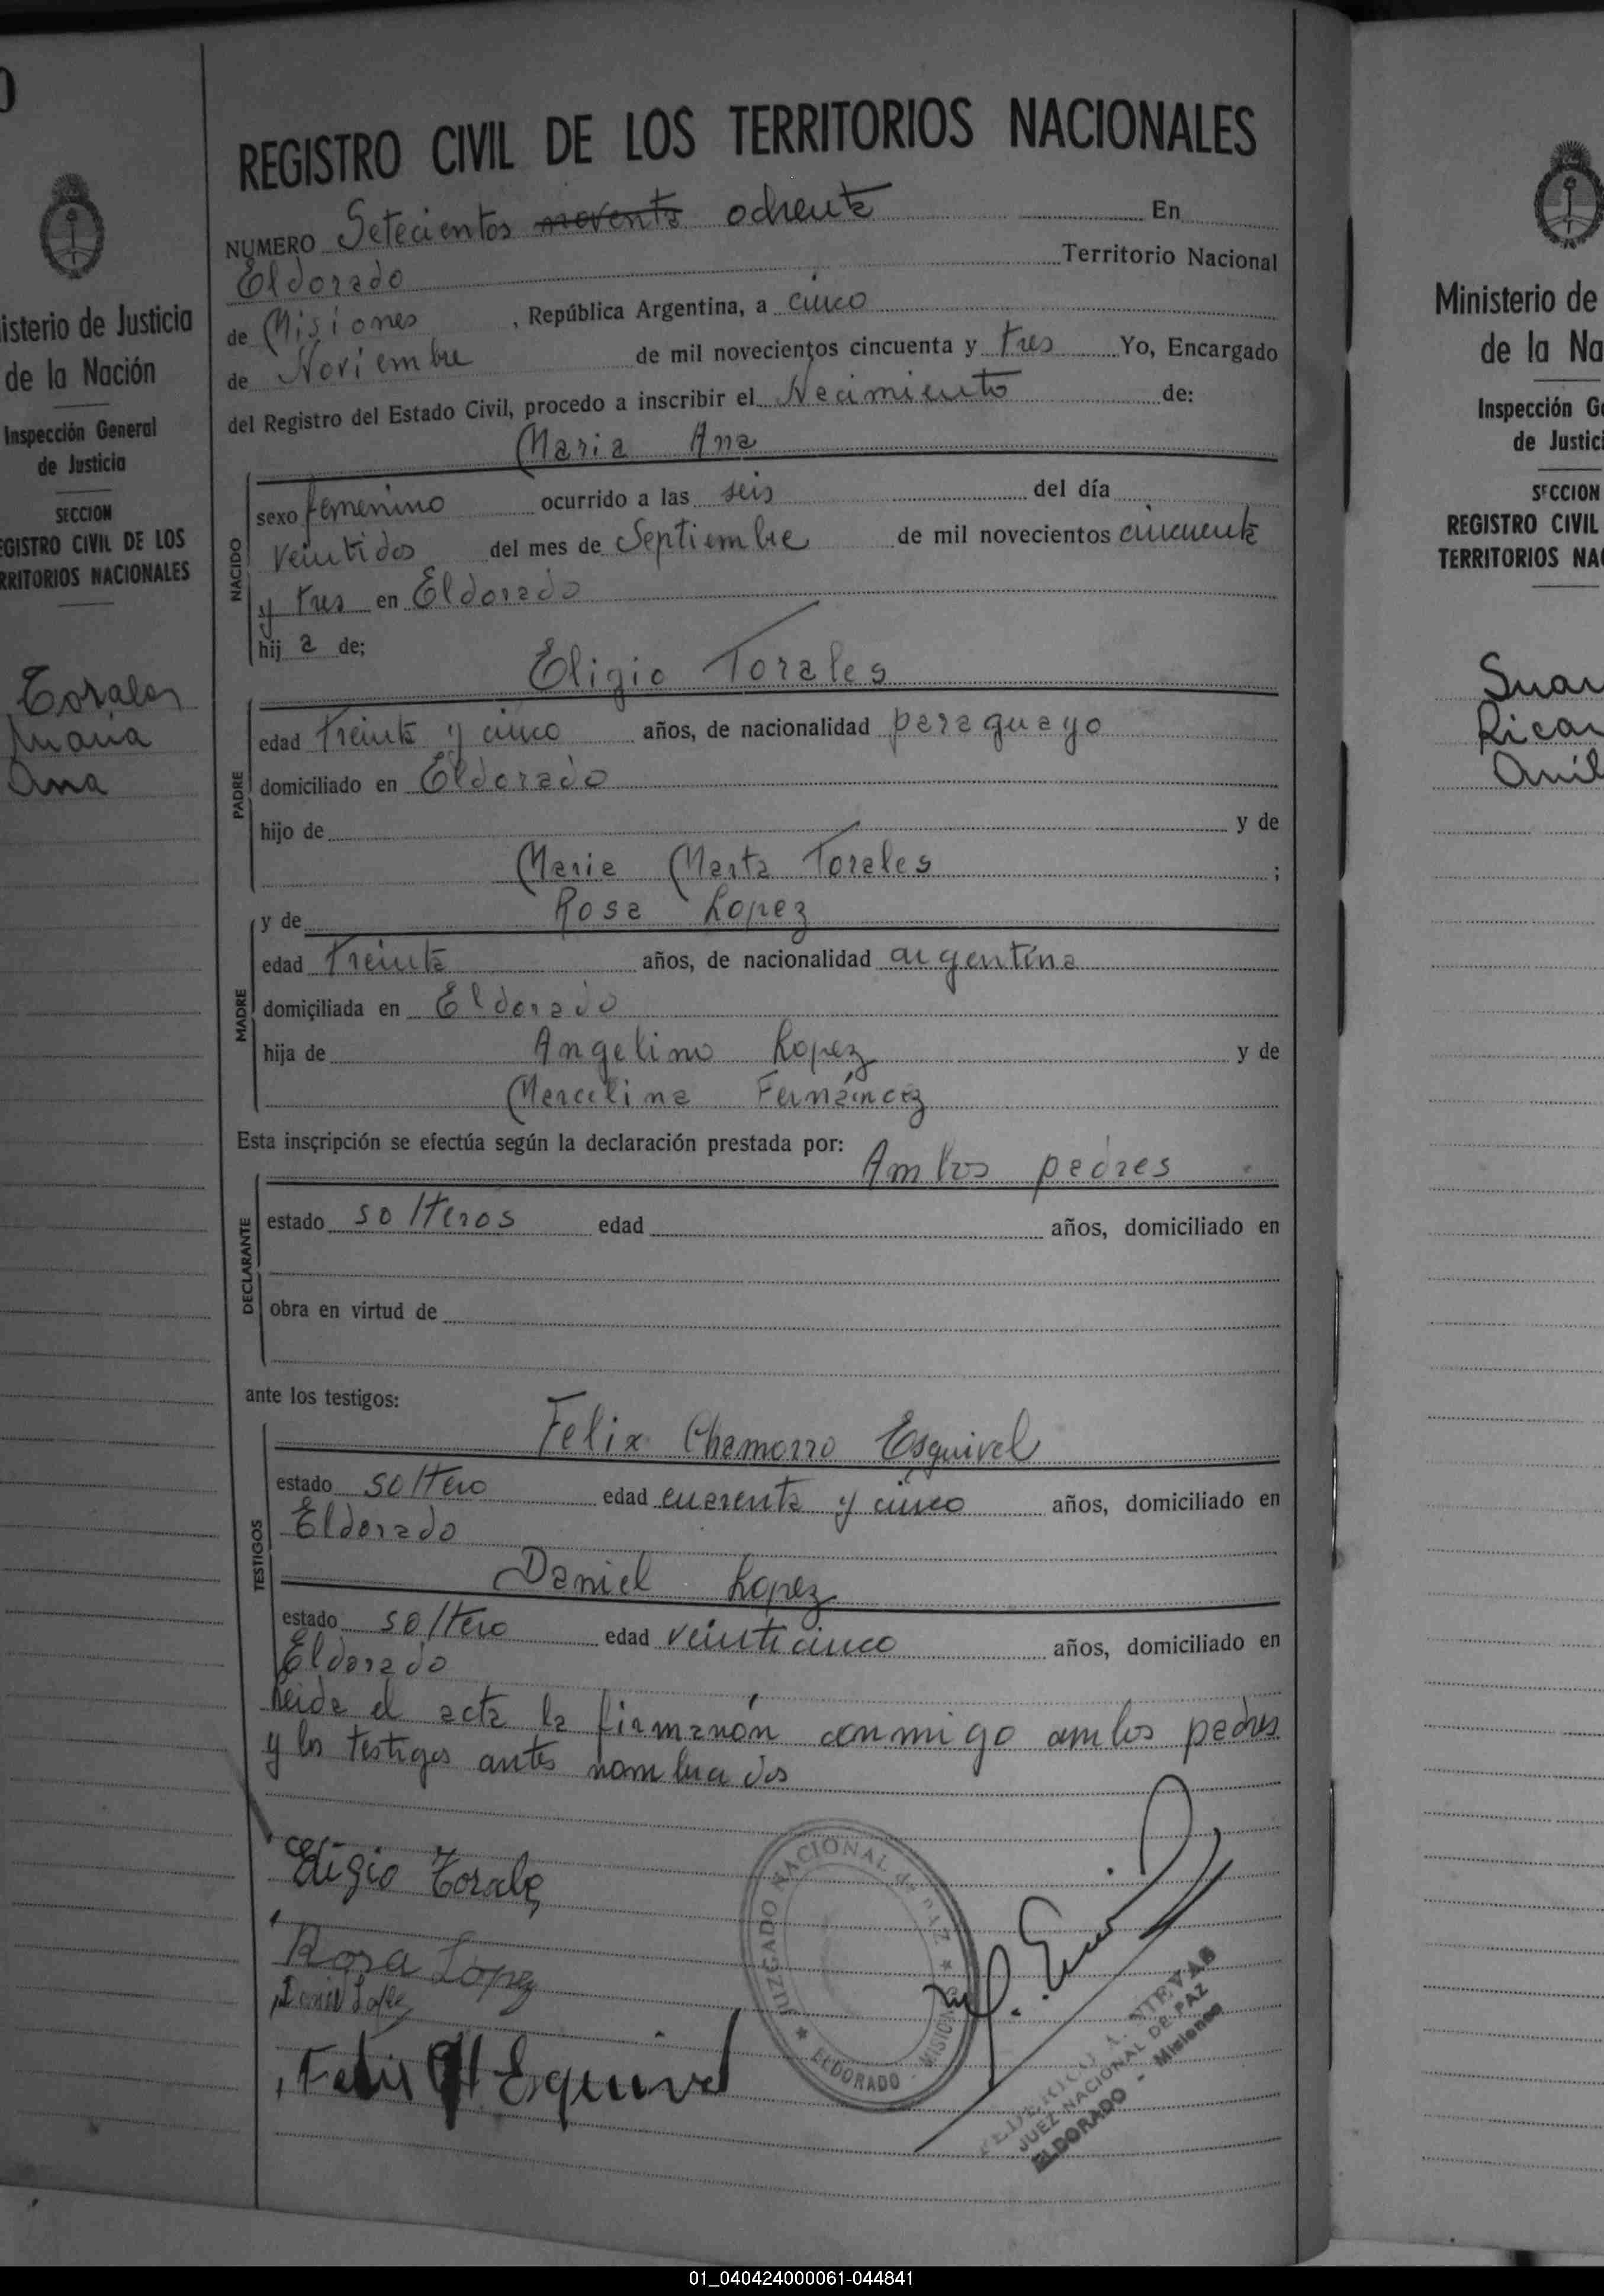 REGISTRO CIVIL DE LOS TERRITORIOS NACIONALES
NUMERO Setecientos noventa ochenta En
Eldorado Territorio Nacional
de Misiones , República Argentina, a cinco
de Noviembre de mil novecientos cincuenta y tres Yo, Encargado
del Registro del Estado Civil, procedo a inscribir el Nacimiento de:
Maria Ana
NACIDO
sexo femenino ocurrido a las seis del día
veintidos del mes de Septiembre de mil novecientos cincuenta
y tres en Eldorado
hij a de;
Eligio Torales
PADRE
edad treinta y cinco años, de nacionalidad paraguayo
domiciliado en Eldorado
hijo de y de
Maria Marta Torales ;
MADRE
y de Rosa Lopez
edad treinta años, de nacionalidad argentina
domiciliada en Eldorado
hija de Angelino Lopez y de
Marcelina Fernández
Esta inscripción se efectúa según la declaración prestada por:
Ambos padres
DECLARANTE
estado solteros edad años, domiciliado en
obra en virtud de
ante los testigos:
Felix Chamorro Esquivel
TESTIGOS
estado soltero edad cuarenta y cinco años, domiciliado en
Eldorado
Daniel Lopez
estado soltero edad veinticinco años, domiciliado en
Eldorado
Leida el acta la firmarón conmigo ambos padres
y los testigos antes nombrados
Eligio Torales
Rosa Lopez
Daniel Lopez
Felix Esquivel
JUZGADO NACIONAL de PAZ
ELDORADO - MISIONES
FEDERICO A. NIEVAS
JUEZ NACIONAL DE PAZ
ELDORADO - Misiones
0
isterio de Justicia
de la Nación
Inspección General
de Justicia
SECCION
EGISTRO CIVIL DE LOS
RRITORIOS NACIONALES
Torales
Maria
Ana
Ministerio de
de la Na
Inspección Ge
de Justici
SECCION
REGISTRO CIVIL
TERRITORIOS NA
Suar
Ricar
01_040424000061-044841